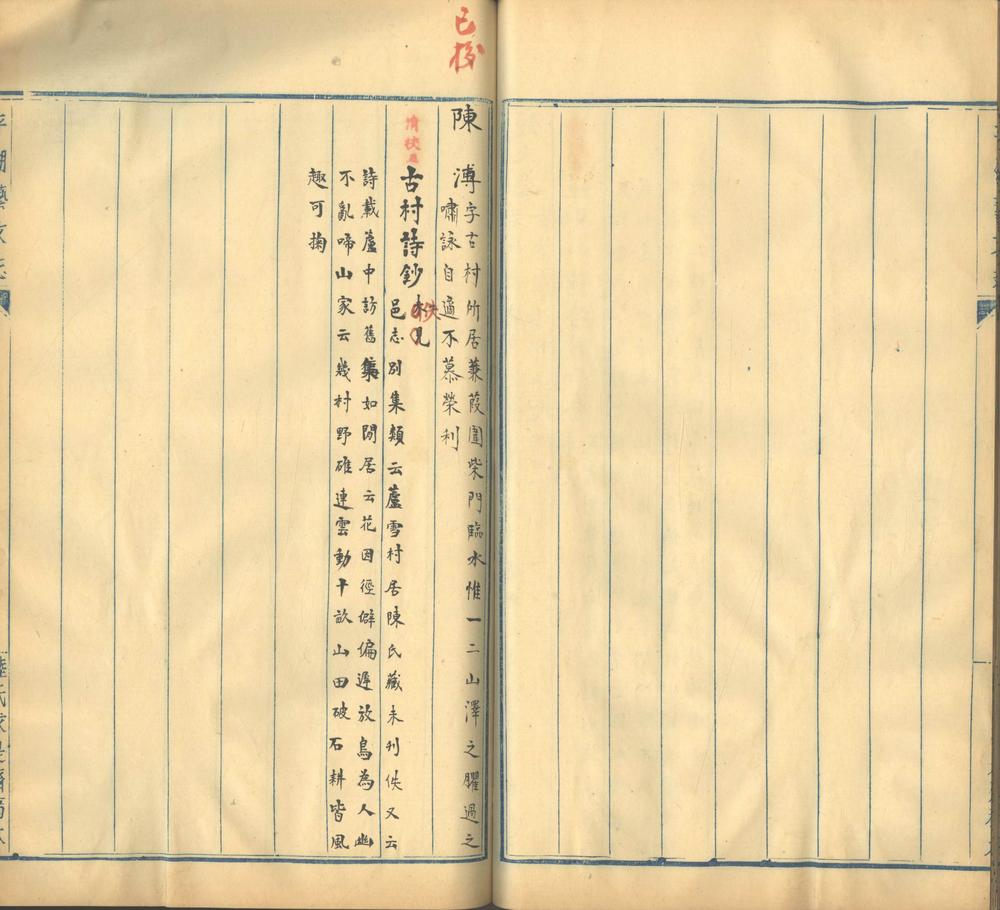 已校
陳
溥字古村所居蒹葭圍柴門臨水惟一二山澤之臞過之
嘯詠自適不慕榮利
古村詩鈔
未見
佚
邑志別集類云蘆雪村居陳氏藏未刋佚又云
詩載蘆中訪舊集如閒居云花因徑僻偏遲放鳥為人幽
不亂啼山家云幾村野碓連雲動十畝山田破石耕皆風
趣可掬
平湖藝文志
陸氏求是齋寫本